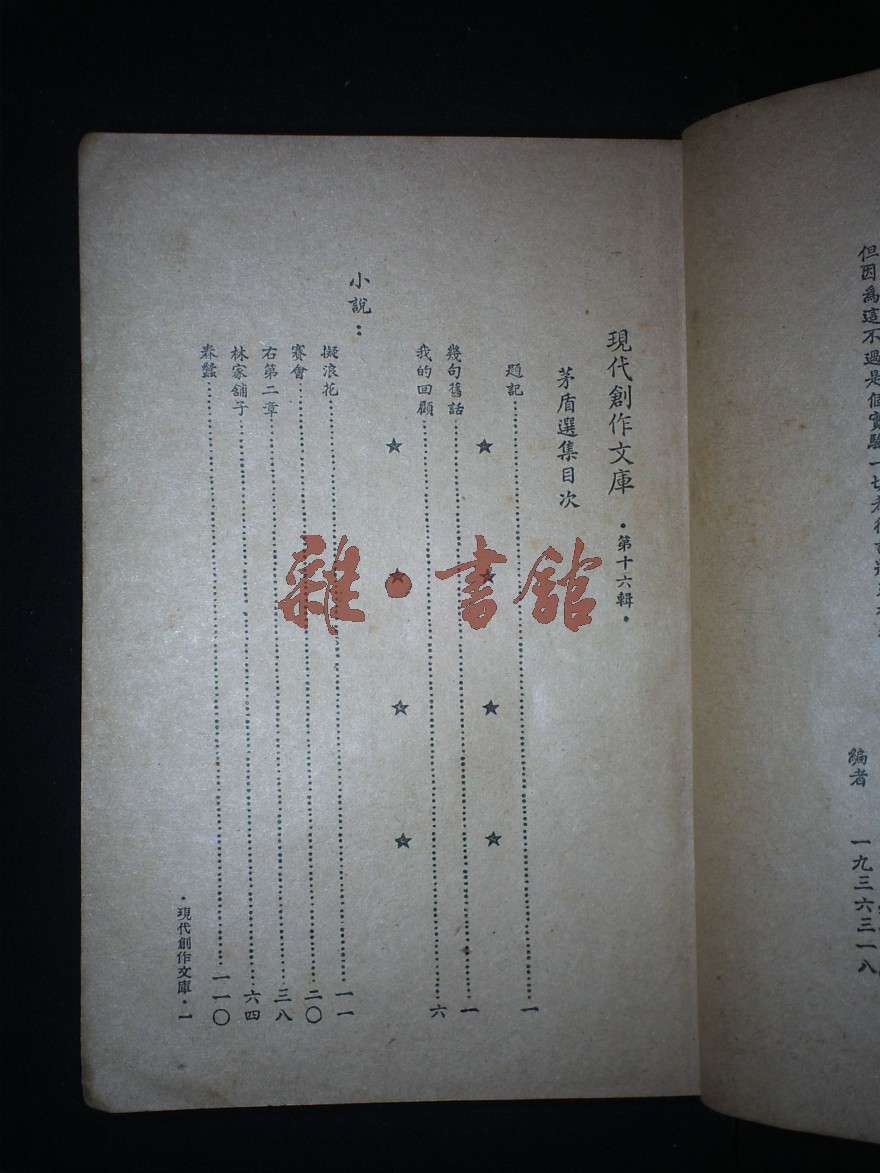 但因為這不過是個實驗一切
編者
一九三六三一八
現代創作文庫 •第十六輯•
茅盾選集目次
題記……一
★ ★ ★ ★
幾句舊話……一
我的回顧……六
★ ★ ★ ★
小說：
擬浪花……一一
賽會……二〇
右第二章……三八
林家舖子……六四
春蠶……一一〇
•現代創作文庫•一
雜•書館